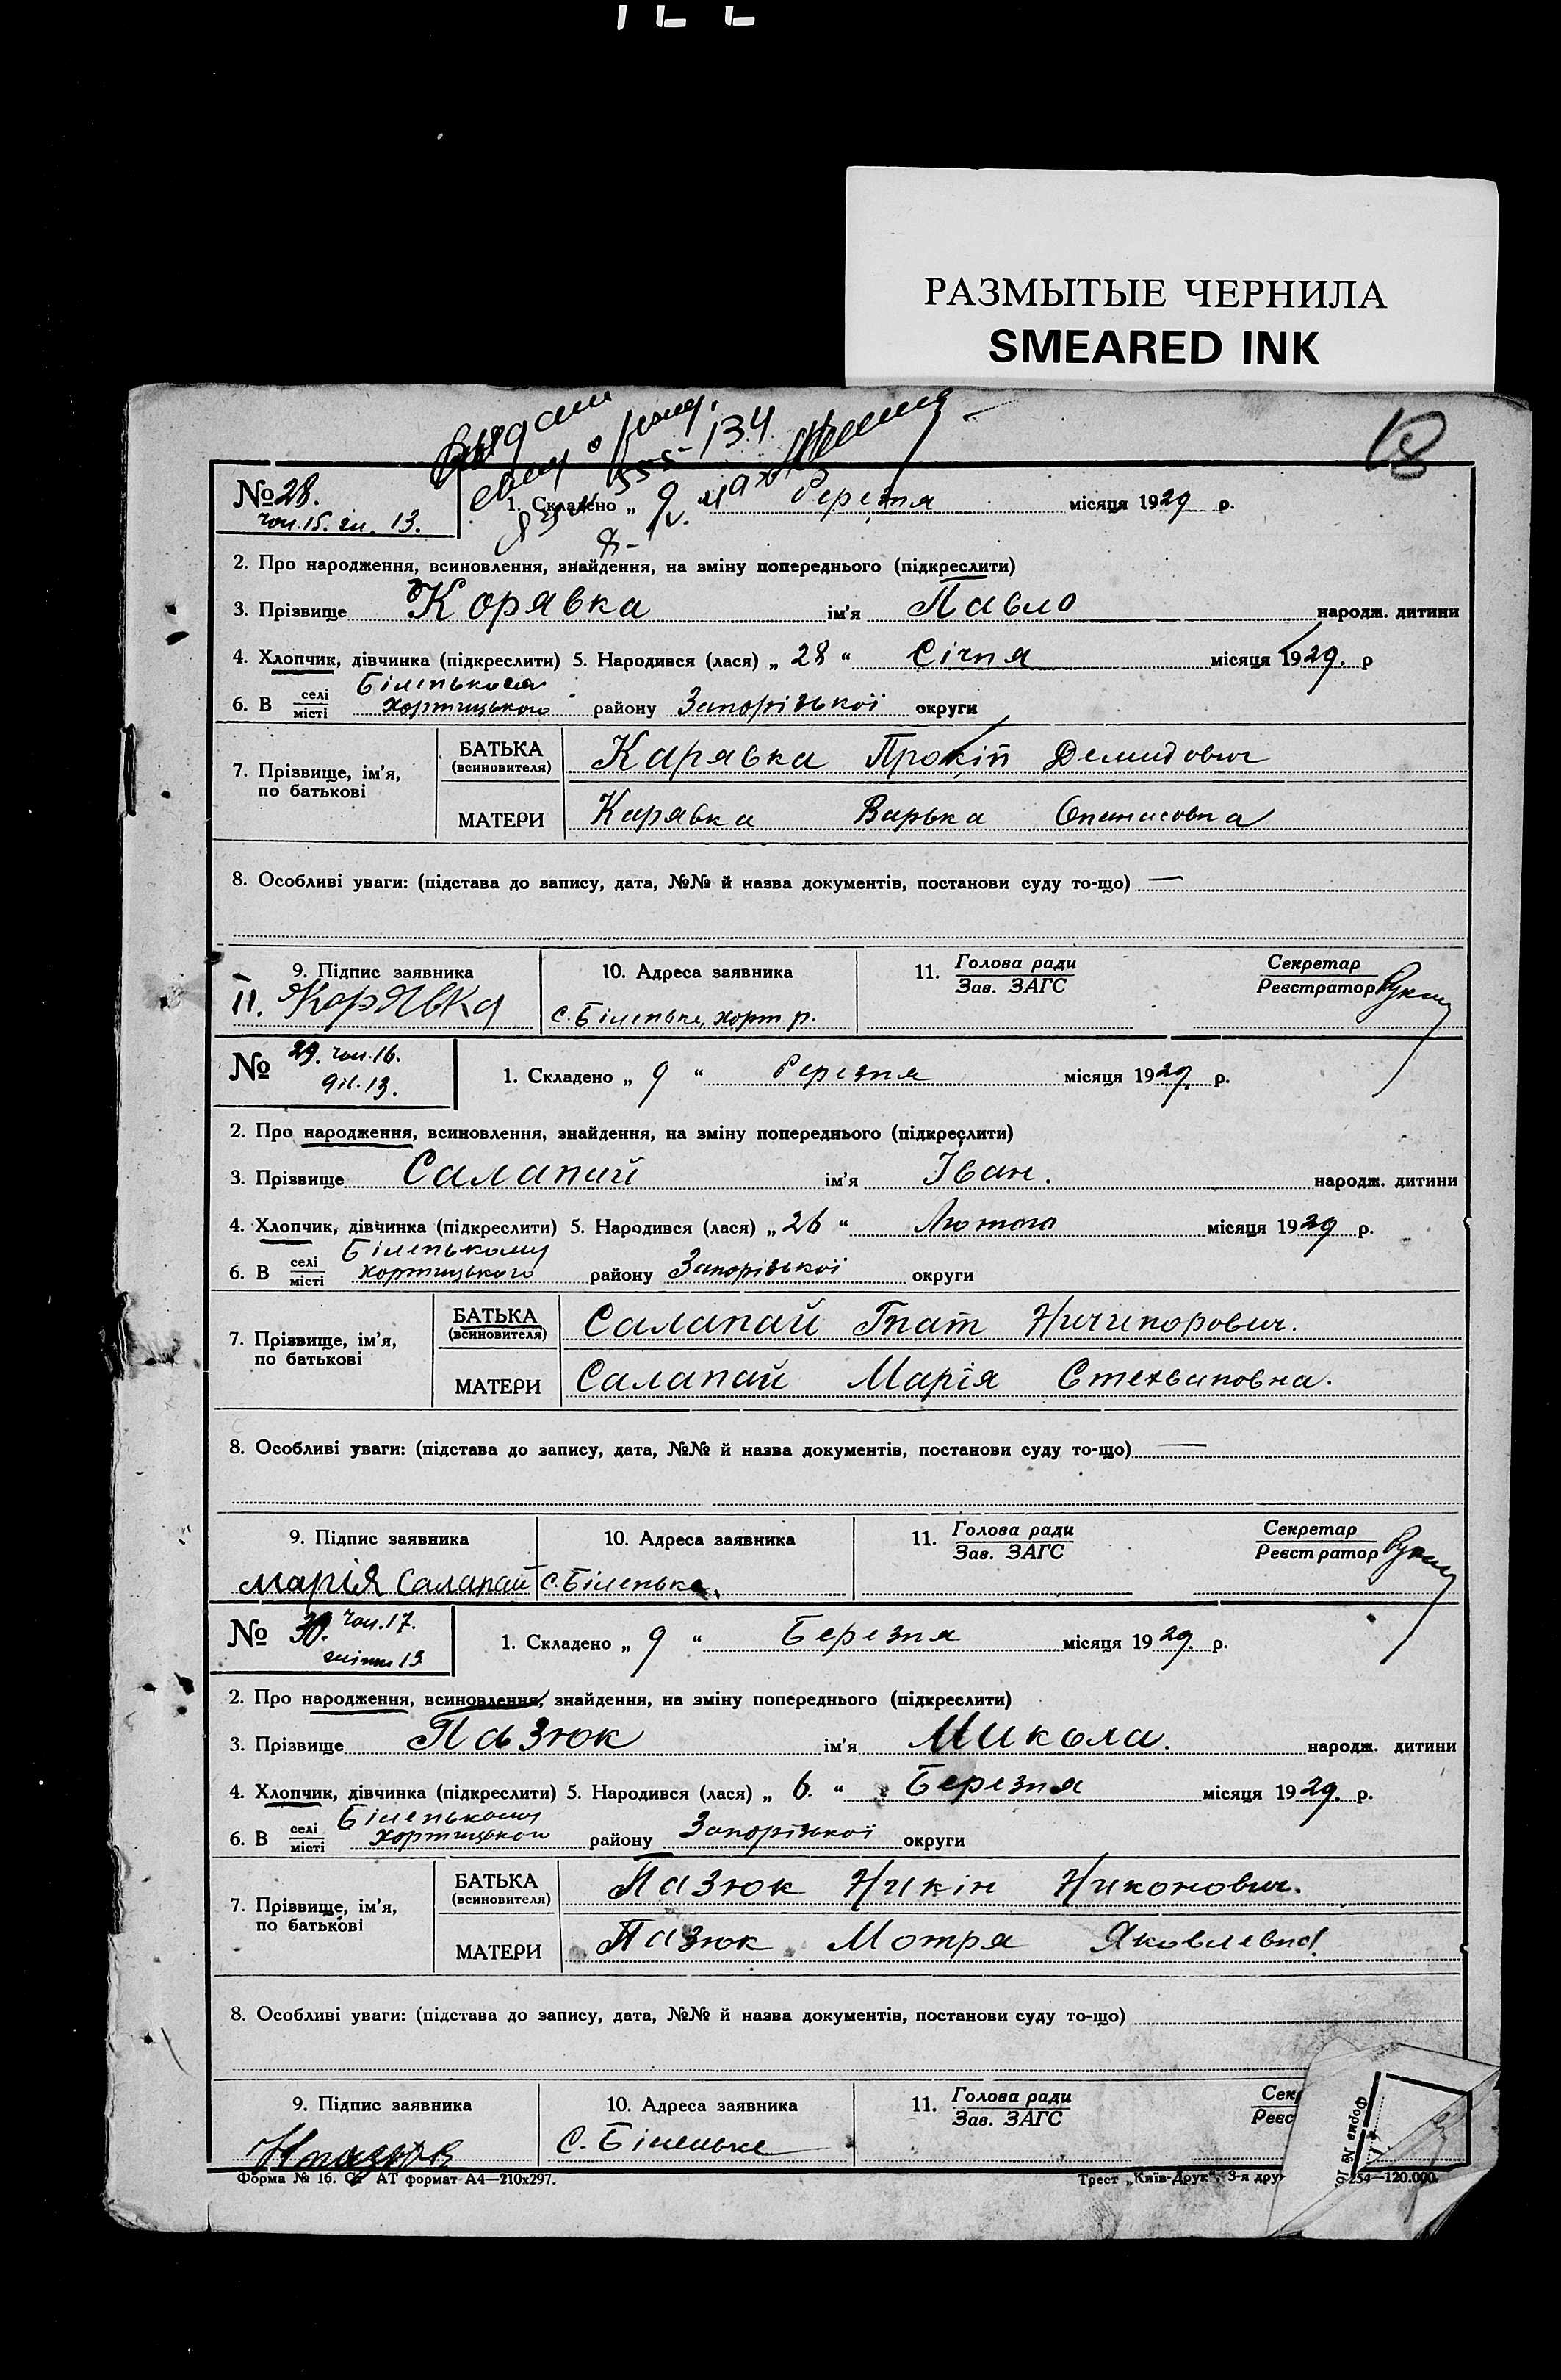 РАЗМЫТЫЕ ЧЕРНИЛА
SMEARED INK
134
№ 28.
чол. 15. 13.
1. Складено „ 9 “ Березня місяця 1929 р.
2. Про народження, всиновлення, знайдення, на зміну попереднього (підкреслити)
3. Прізвище Корявка ім'я Павло народж. дитини
4. Хлопчик, дівчинка (підкреслити) 5. Народився (лася) „ 28 “ Січня місяця 1929. р
6. В селі / місті Хортицького району Запорізької округи
7. Прізвище, ім'я, по батькові
БАТЬКА (всиновителя) Карявка Прокіп Демидович
МАТЕРИ Карявка Варька Опанасовна
8. Особливі уваги: (підстава до запису, дата, №№ й назва документів, постанови суду то-що) —
9. Підпис заявника
10. Адреса заявника
11. Голова ради / Зав. ЗАГС
Секретар / Реєстратор
П. Корявка
с. Біленьке, хорт р.
№ 29. чол. 16.
13.
1. Складено „ 9 “ Березня місяця 1929. р.
2. Про народження, всиновлення, знайдення, на зміну попереднього (підкреслити)
3. Прізвище Салапай ім'я Іван. народж. дитини
4. Хлопчик, дівчинка (підкреслити) 5. Народився (лася) „ 26 “ Лютого місяця 1929 р.
Біленькому
6. В селі / місті Хортицького району Запорізької округи
7. Прізвище, ім'я, по батькові
БАТЬКА (всиновителя) Салапай Гнат Ничипорович.
МАТЕРИ Салапай Марія Стехвановна.
8. Особливі уваги: (підстава до запису, дата, №№ й назва документів, постанови суду то-що) —
9. Підпис заявника
10. Адреса заявника
11. Голова ради / Зав. ЗАГС
Секретар / Реєстратор
Марія Салапай
с. Біленьке,
№ 30. чол. 17.
жінки 13
1. Складено „ 9 “ Березня місяця 1929. р.
2. Про народження, всиновлення, знайдення, на зміну попереднього (підкреслити)
3. Прізвище Пазюк ім'я Микола. народж. дитини
4. Хлопчик, дівчинка (підкреслити) 5. Народився (лася) „ 6. “ Березня місяця 1929. р.
Біленькому
6. В селі / місті Хортицького району Запорізької округи
7. Прізвище, ім'я, по батькові
БАТЬКА (всиновителя) Пазюк Никін Никонович.
МАТЕРИ Пазюк Мотря Яковлевна.
8. Особливі уваги: (підстава до запису, дата, №№ й назва документів, постанови суду то-що)
9. Підпис заявника
10. Адреса заявника
11. Голова ради / Зав. ЗАГС
с. Біленьке
Форма № 16. Ст АТ формат А4—210х297.
Трест „Київ-Друк“, 3-я дру 254—120.000.
Форма №